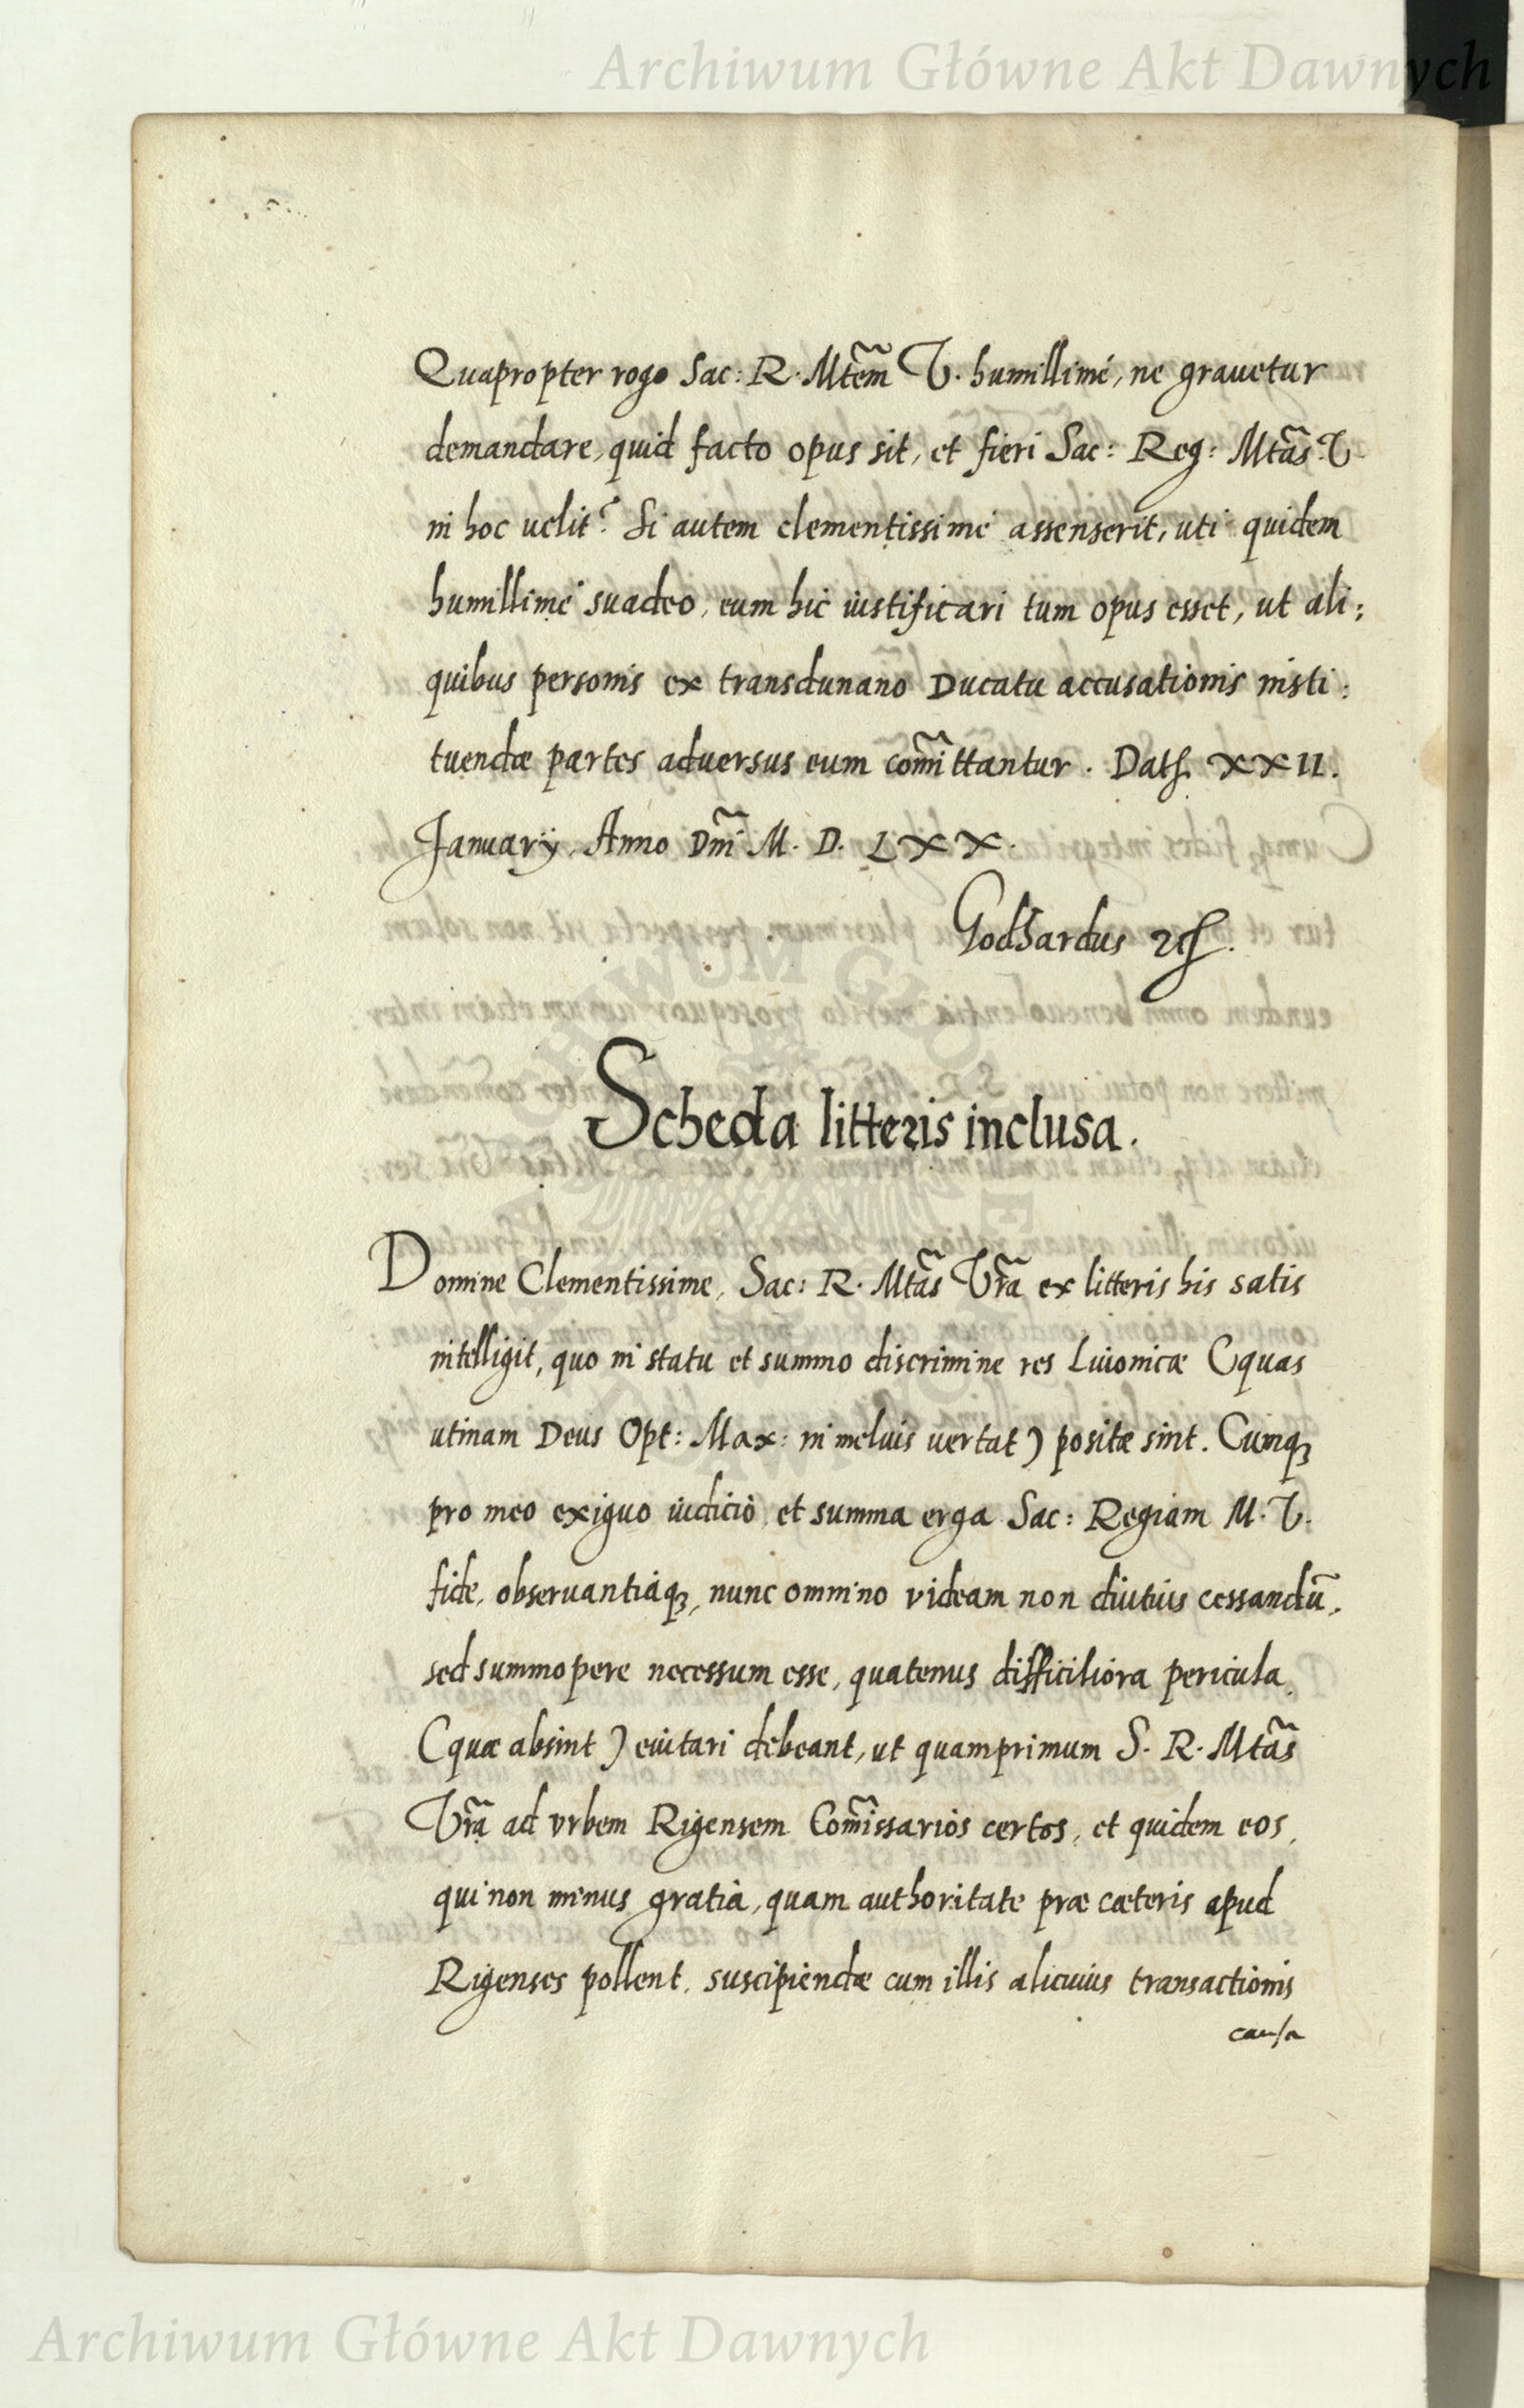 Archiwum Główne Akt Dawnych
Quapropter rogo Sac: R. Mtem̃ V. humillimé, ne grauetur
demandare, quid facto opus sit, et fieri Sac: Reg: Mtãs V.
in hoc uelit? Si autem clementissimé assenserit, uti quidem
humillimé suadeo, eum hic iustificari tum opus esset, ut ali:
quibus personis ex transdunano Ducatu accusationis insti:
tuendæ partes aduersus eum com̃ittantur. Dat. XXII.
Januarÿ, Anno Dm̃i M. D. LXX.
Godhardus
Scheda litteris inclusa.
Domine Clementissime, Sac: R. Mtãs Vr̃a ex litteris his satis
intelligit, quo in statu et summo discrimine res Liuonicæ (quas
utinam Deus Opt: Max: in melius vertat) positæ sint. Cumq;
pro meo exiguo iudicio, et summa erga Sac: Regiam M. V.
fide, obseruantiaq;, nunc omnino videam non diutius cessandũ,
sed summopere necessum esse, quatenus difficiliora pericula
(quæ absint) euitari debeant, ut quamprimum S. R. Mtãs
Vr̃a ad vrbem Rigensem Com̃issarios certos, et quidem eos,
qui non minus gratia, quam authoritate præ cæteris apud
Rigenses pollent, suscipiendæ cum illis alicuius transactionis
causa
Archiwum Główne Akt Dawnych